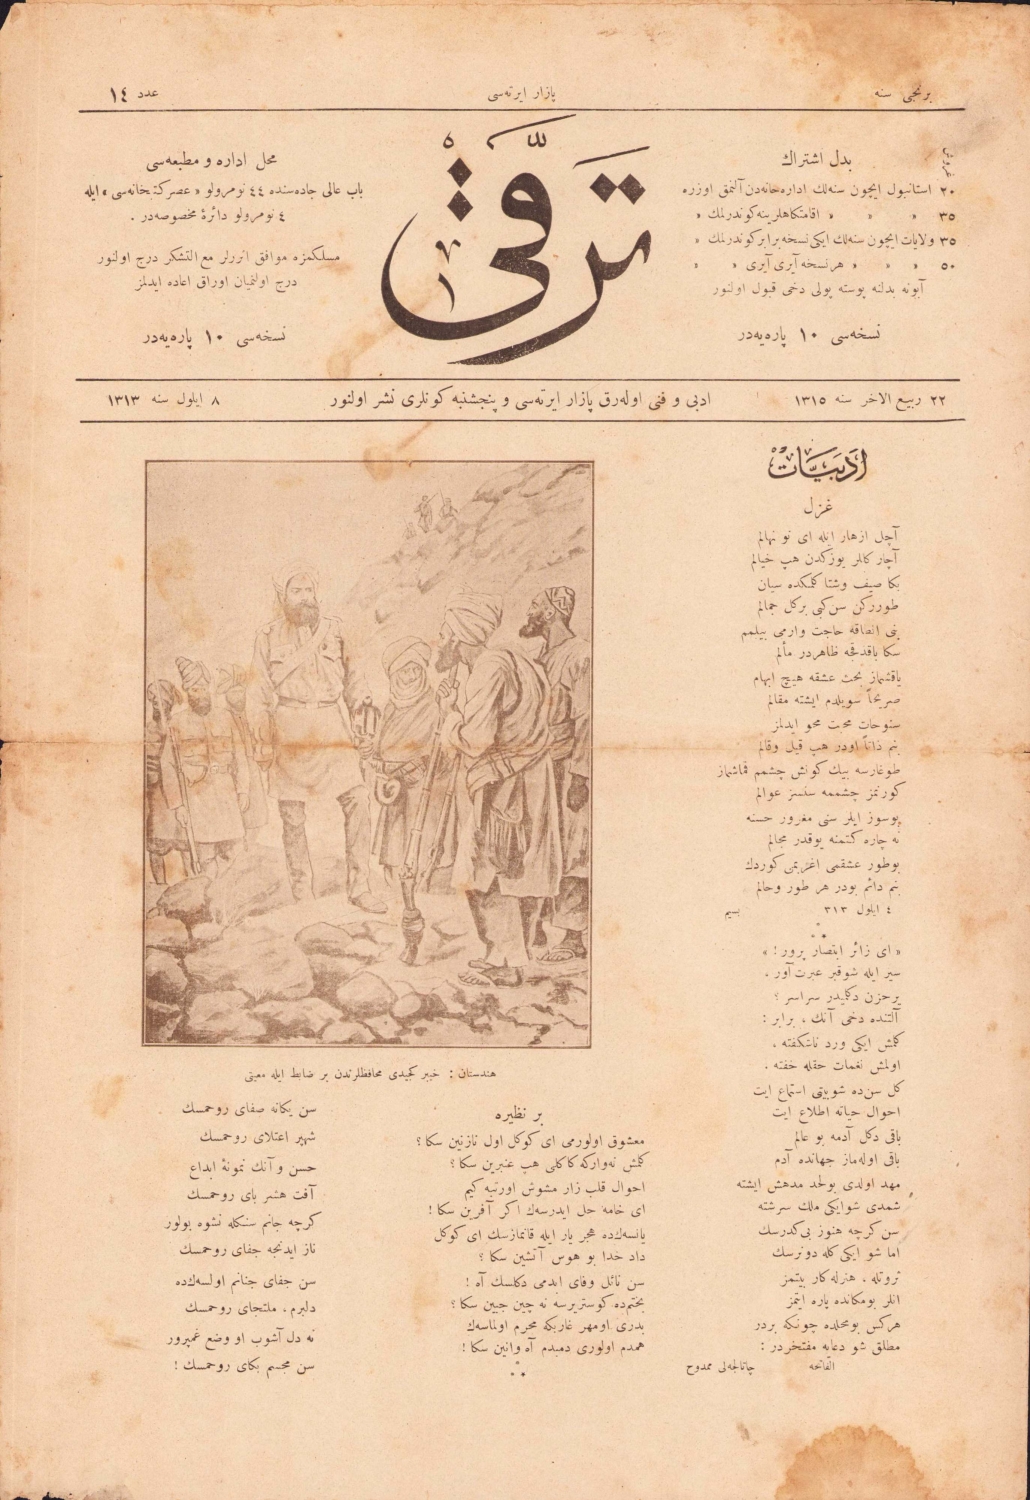 برنجی سنه
پازار ایرته‌سی
عدد ١٤
ترقی
بدل اشتراك
غروش
٢٠ استانبول ایچون سنه‌لك اداره‌خانه‌دن آلنمق اوزره
٣٥ » » » اقامتكاهلرینه كوندرلمك »
٣٥ ولایات ایچون سنه‌لك ایكی نسخه برابر كوندرلمك »
٥٠ » » » هر نسخه آیری آیری » »
آبونه بدلنه پوسته پولی دخی قبول اولنور
نسخه‌سی ١٠ پاره‌یه‌در
محل اداره و مطبعه‌سی
باب عالی جاده‌سنده ٤٤ نومرولو « عصر كتبخانه‌سی » ایله
٤ نومرولو دائرهٔ مخصوصه‌در .
مسلكمزه موافق اثرلر مع التشكر درج اولنور
درج اولنمیان اوراق اعاده ایدلمز
نسخه‌سی ١٠ پاره‌یه‌در
٢٢ ربیع الاخر سنه ١٣١٥
ادبی و فنی اوله‌رق پازار ایرته‌سی و پنجشنبه كونلری نشر اولنور
٨ ایلول سنه ١٣١٣
ادبیات
غزل
آچل ازهار ایله ای نو نهالم
آچار كللر یوزكدن هپ خیالم
بكا صیف وشتا كمكده سیان
طوررکن سن كبی بر كل جمالم
بنی انطاقه حاجت وارمی بیلمم
سكا باقدقجه ظاهردر مألم
یاقشماز بحث عشقه هیچ ابهام
صریحاً سویلدم ایشته مقالم
سنوحات محبت محو ایدلمز
بنم ذاتاً اودر هپ قیل وقالم
طوغارسه بیك كونش چشمم قماشماز
كورنمز چشممه سنسز عوالم
بوسوز ایلر سنی مغرور حسنه
نه چاره كتمنه یوقدر مجالم
بوطور عشقمی اغربمن كوردك
بنم دائم بودر هر طور وحالم
٤ ایلول ٣١٣
بسیم
« ای زائر ابتصار پرور ! »
سیر ایله شوقبر عبرت آور ،
پرحزن دكلمیدر سراسر ؟
آلتنده دخی آنك ، برابر :
كلمش ایكی ورد ناشكفته ،
اولمش نغمات حقله خفته .
كل سن‌ده شوبیتی استماع ایت
احوال حیاته اطلاع ایت
باقی دكل آدمه بو عالم
باقی اوله‌ماز جهانده آدم
مهد اولدی بولحد مدهش ایشته
شمدی شوایكی ملك سرشته
سن كرچه هنوز بی‌كدرسك
اما شو ایكی كله دونرسك
ثروتله ، هنرله كار بیتمز
انلر بومكانده پاره ایتمز
هركس بومحلده چونكه بردر
مطلق شو دعایه مفتخردر :
الفاتحه
چاتالجه‌لی ممدوح
هندستان : خیبر كچیدی محافظلرندن بر ضابط ایله معیتی
بر نظیره
معشوق اولورمی ای كوكل اول نازنین سكا ؟
كلمش نه‌وارکه كاكلی هپ عنبرین سكا ؟
احوال قلب زار مشوش اورتبه كیم
ای خامه حل ایدرسه‌ك اكر آفرین سكا !
یانسه‌كده هجر یار ایله قانمازسك ای كوكل
داد خدا بو هوس آتشین سكا ؟
سن نائل وفای ابدمی دكلسك آه !
بختم‌ده كوستریرسه نه چین جبین سكا ؟
بدری اومهر غاربكه محرم اولماسه‌ك
همدم اولوری دمبدم آه وانین سكا !
سن یكانه صفای روحمسك
شهپر اعتلای روحمسك
حسن و آنك نمونهٔ ابداع
آفت هشر بای روحمسك
كرچه جانم سنكله نشوه بولور
ناز ایدنجه جفای روحمسك
سن جفای جنانم اولسه‌كده
دلبرم ، ملتجای روحمسك
نه دل آشوب او وضع غمپرور
سن مجسم بكای روحمسك !